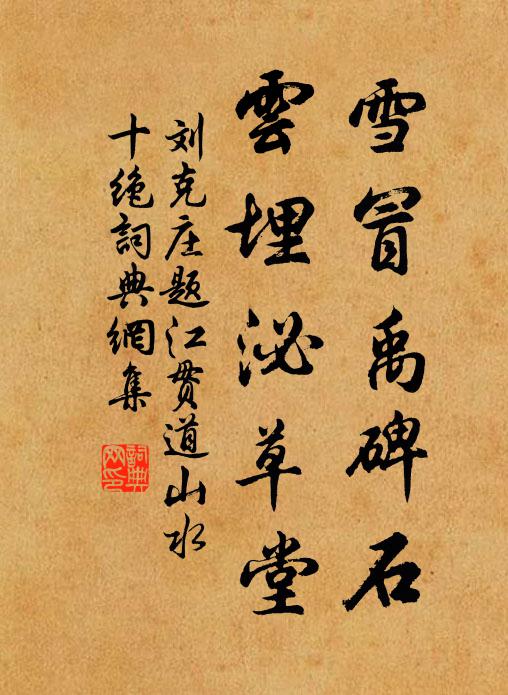 雪冒禹碑石
雲埋泌草堂
刘克庄题江贯道山水
十绝詞典網集
詞典網印